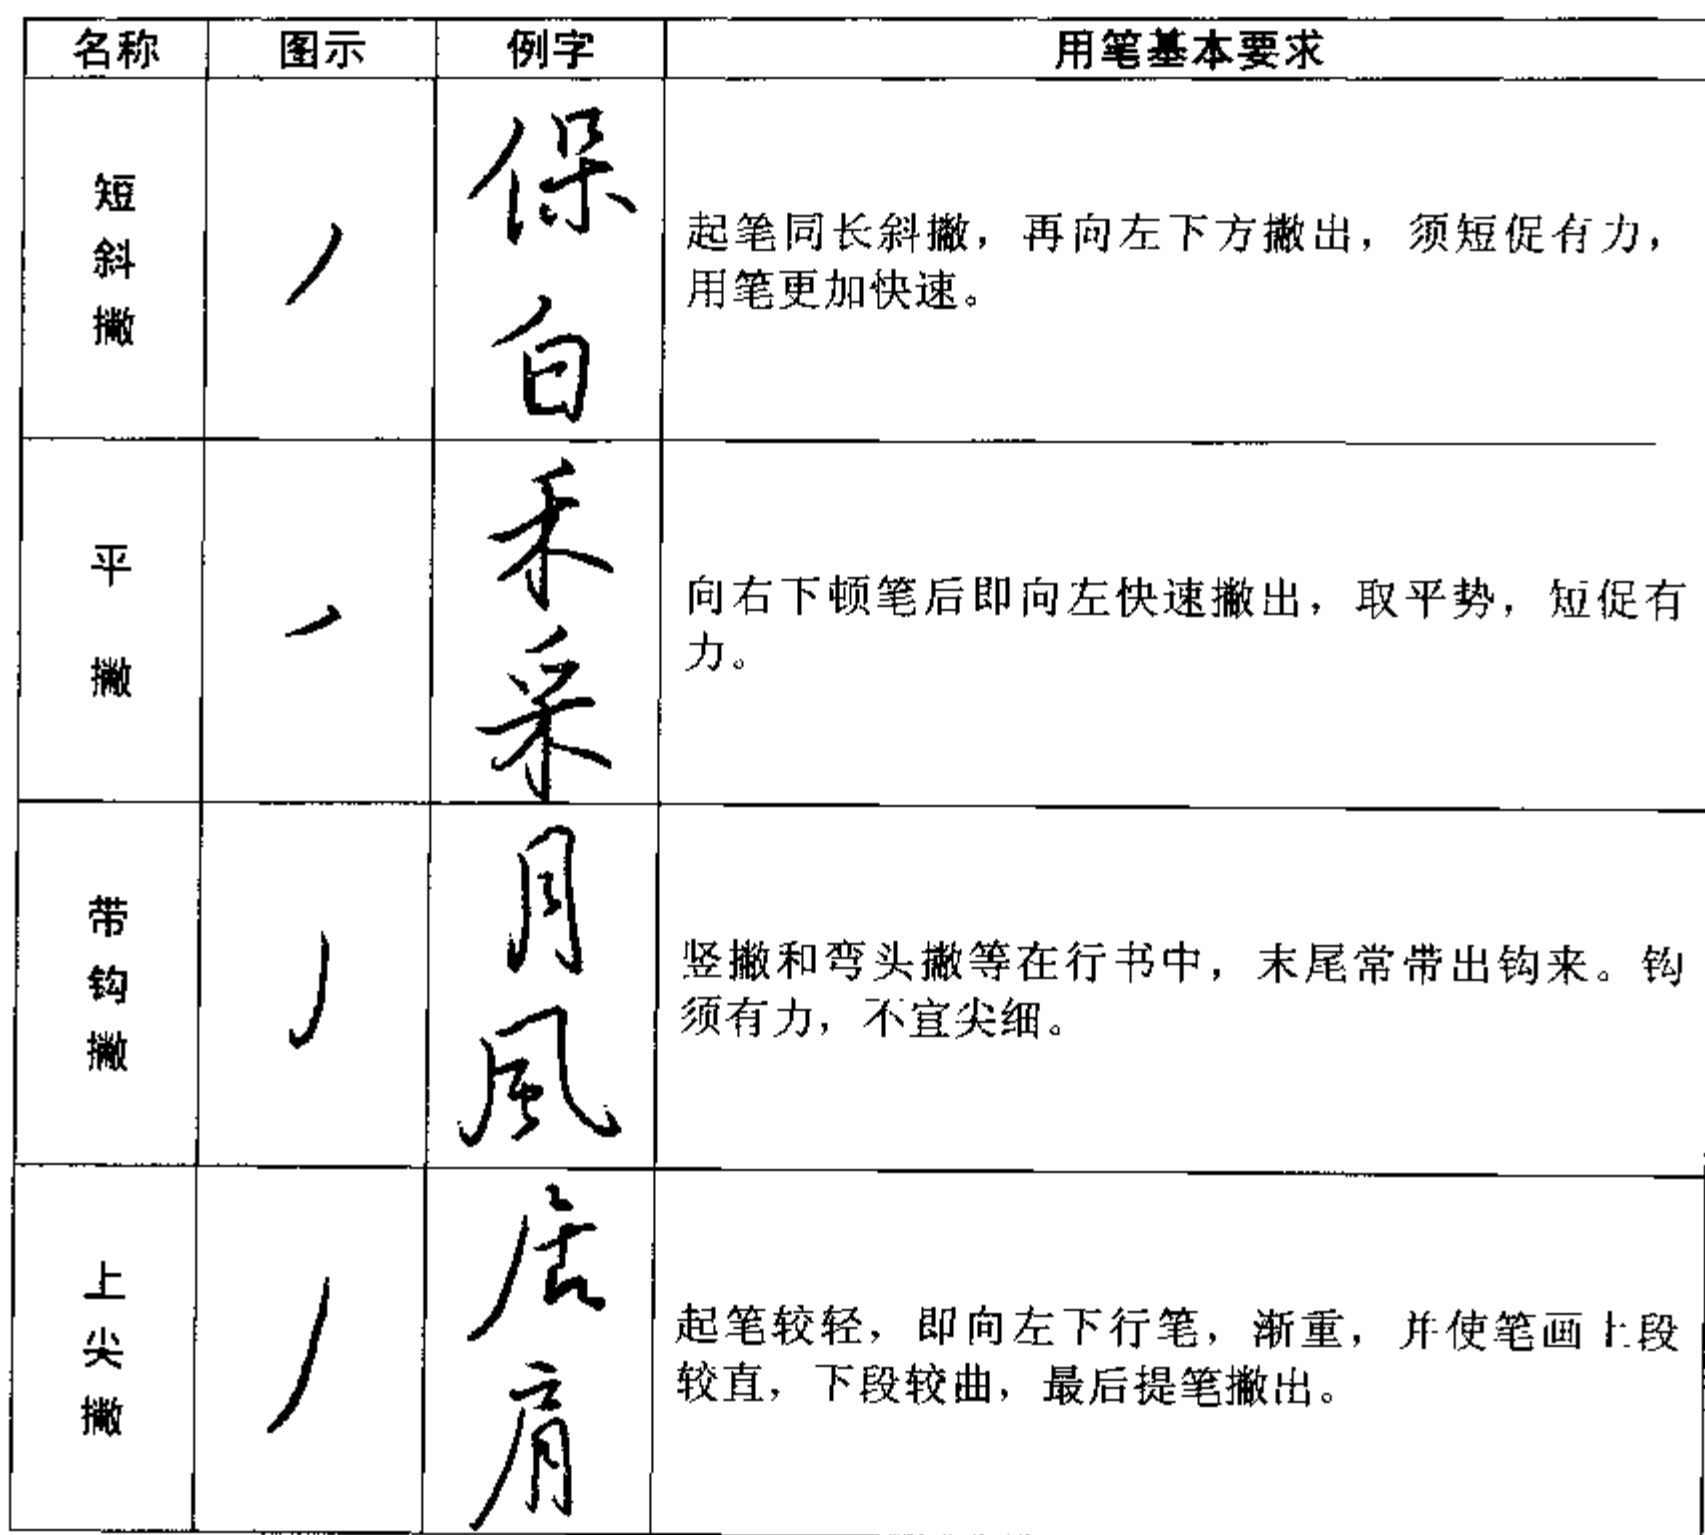 名称 图示 例字 用笔基本要求
短斜撇
保
白
起笔同长斜撇，再向左下方撇出，须短促有力，
用笔更加快速。
平撇
禾
采
向右下顿笔后即向左快速撇出，取平势，短促有
力。
带钩撇
月
風
竖撇和弯头撇等在行书中，末尾常带出钩来。钩
须有力，不宜尖细。
上尖撇
居
肩
起笔较轻，即向左下行笔，渐重，并使笔画上段
较直，下段较曲，最后提笔撇出。